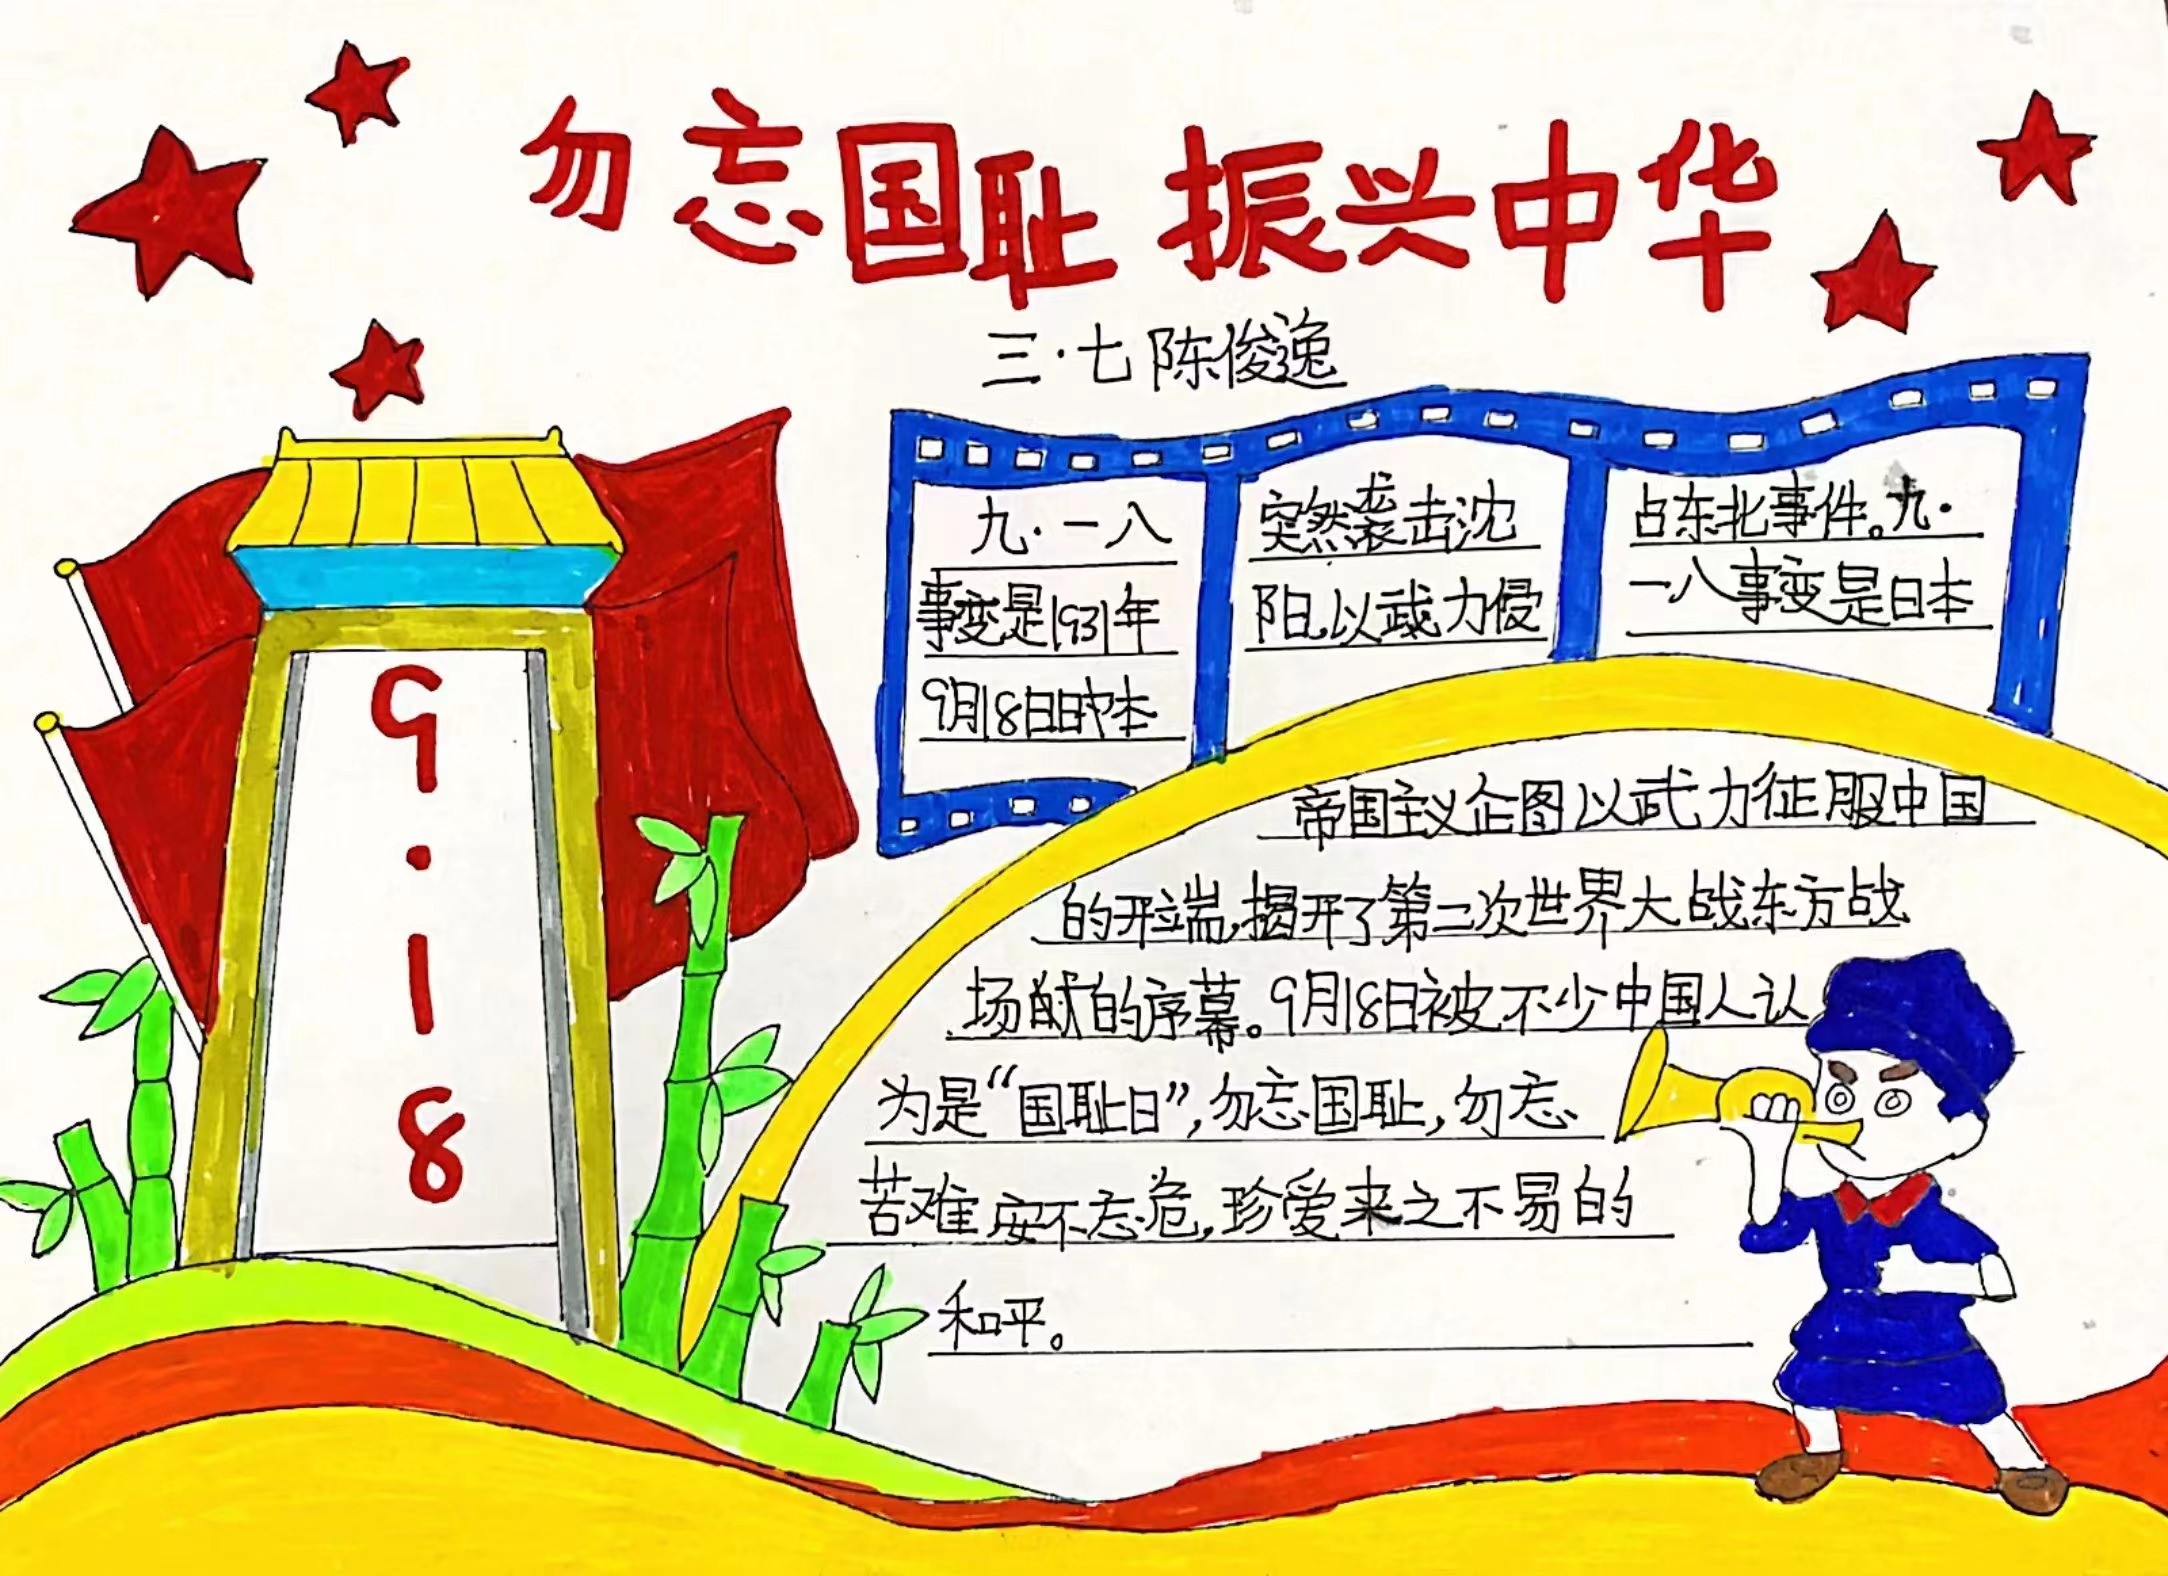 勿忘国耻 振兴中华
三·七 陈俊逸
9
·
1
8
九·一八
事变是1931年
9月18日日本
突然袭击沈
阳,以武力侵
占东北事件。九·
一八事变是日本
帝国主义企图以武力征服中国
的开端,揭开了第二次世界大战东方战
场的序幕。9月18日被不少中国人认
为是“国耻日”,勿忘国耻,勿忘
苦难,安不忘危,珍爱来之不易的
和平。